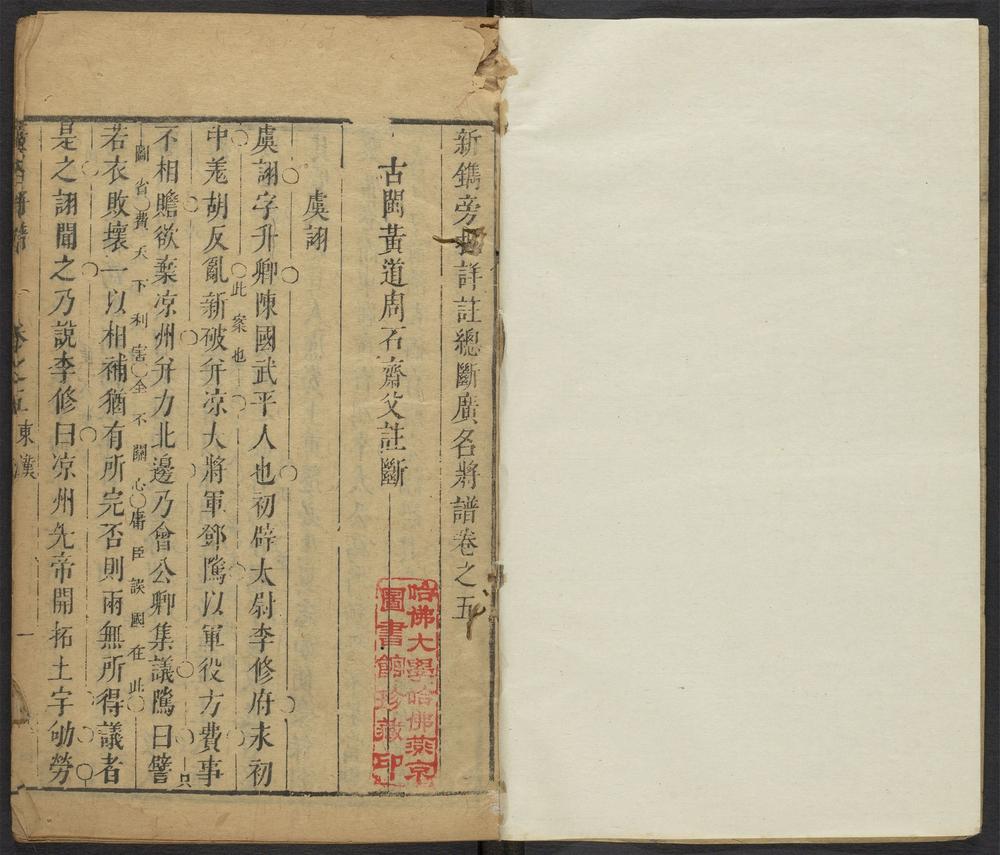 新鐫旁批詳註總斷廣名將譜卷之五
古閩黃道周石齋父註斷
虞詡
虞詡字升卿陳國武平人也初辟太尉李修府永初
中羗胡反亂新破并凉大將軍鄧隲以軍役方費事
此案也
不相贍欲棄凉州并力北邊乃會公卿集議隲曰譬
只
圖省費天下利害全不關心庸臣談國在此
若衣敗壞一以相補猶有所完否則兩無所得議者
是之詡聞之乃說李修曰凉州先帝開拓土宇劬勞
卷之五
東漢
一
哈佛大學哈佛燕京
圖書館珍藏印